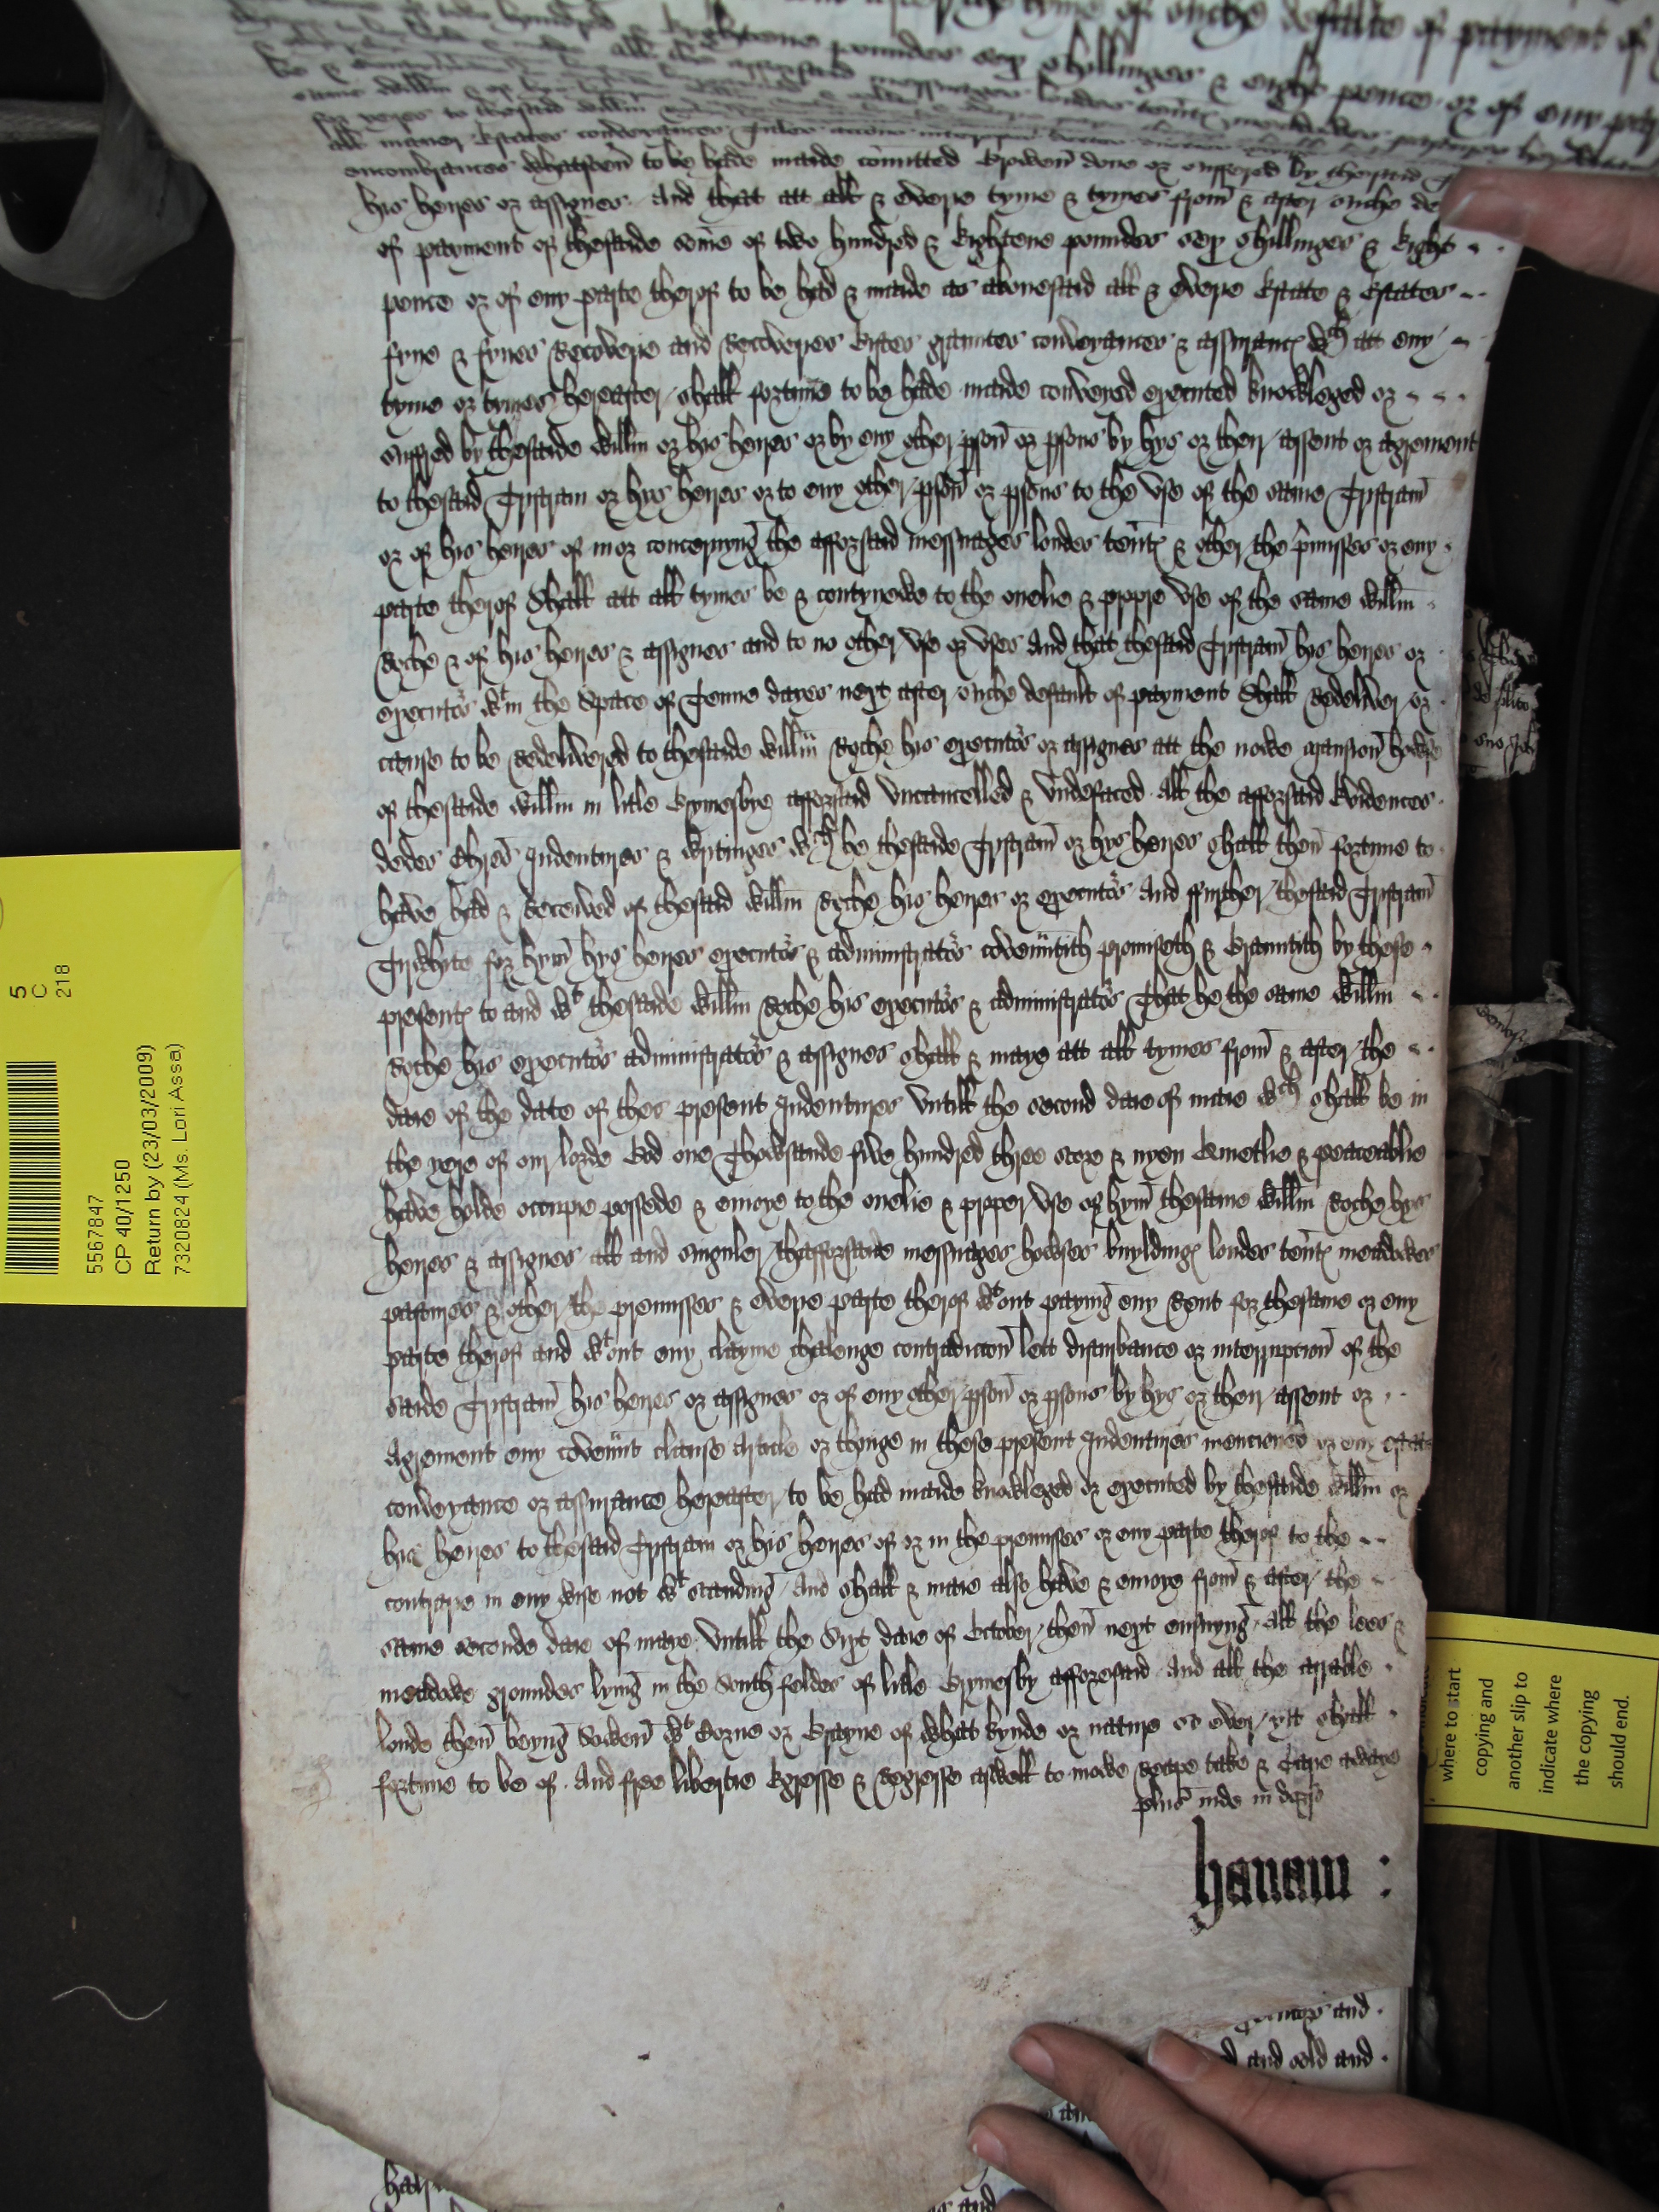 of suche defalte of payment of
hundred & Eightene poundes sex shyllinges & eight pence or of eny par
all the afforesaid messuages londes
all maner Estates conveyances
encombrances whatsoeu' to be hade made co'mitted knowen done or suffered by thesaid
his heires or assignes And that att all & everie tyme & tymes from & after suche de
of payment of thesaide some of two hundred & Eightene poundes sex shillinges & Eight
pence or of eny parte therof to be had & made as abovesaid all & everie Estate & Estates
fyne & fynes Recoverie and Recoveries Giftes grauntes conveyances & assurancs wch att eny
tyme or tymes hereafter shall fortune to be hade made conveyed executed knowleged or
suffred by thesaide Willm or his heires or by eny other pson or psons by hys or their assent or agrement
to thesaid Tristram or hys heires or to eny other pson or psons to the Use of the same Tristram
or of his heires of in or concernyng the afforsaid messuages londes tents & other the p'misses or eny
parte therof Shall att all tymes be & contynewe to the onelie & propre Use of the same Willm
Roche & of his heires & assignes and to no other Use or Uses And that thesaid Tristram his heires or
executors wtin the Space of Tenne daies next after suche default of payment Shall Redeliver or
cause to be Redelivered to thesaide Willm Roche his executors or assignes att the nowe mansion howse
of thesaide Willm in litle Grymesbye afforsaid Uncancelled & Undefaced All the afforsaid Evidences
dedes Chres Indentures & Wrytinges wch he thesaide Tristram or hys heires shall then fortune to
have had & Received of thesaid Willm Roche his heires or executors And further thesaid Tristram
Tyrwhyte for hym hys heires executors & administrators covenntith promiseth & Grauntith by these
presents to and wt thesaide Willm Roche his executors & administrators That he the same Willm
Roche his executors administrators & assignes shall & maye att all tymes from & after the
daie of the date of thes present Indentures Untill the second daie of maie wch shall be in
the yere of our lorde God one Thowsande five hundred three score & nyen Quietlie & peaceablie
have holde occupie possede & enioye to the onelie & proper Use of hym thesame Willm Roche hys
heires & assignes all and singuler thafforsaide messuages howses buyldings londes tents meadowes
pastures & other the premisses & everie parte therof wtout paying eny Rent for thesame or eny
parte therof and wtout eny clayme chalenge contradiccon lett disturbance or interrupcion of the
saide Tristram his heires or assignes or of eny other pson or psons by hys or their assent or
Agrement eny covennt clause article or thinge in these present Indentures mencioned or eny estate
conveyance or assurance hereafter to be had made knowleged or executed by thesaide Willm or
his heires to thesaid Tristram or his heires of or in the premisses or eny parte therof to the
contrarie in eny wise not wtstanding And shall & maie also have & enioye from & after the
same seconde daie of maye Untill the Sixt daie of October then next ensuyng All the lees &
meadowe groundes lying in the South feldes of litle Grymesby afforesaid And all the arrable
londe then beyng Sowen wt Corne or Grayne of what kynde or nature so ever ytt shall
fortune to be of And free libertie Egresse & Regresse aswell to mowe Reape take & Carie awaie
plus inde in dorso
hanam :
5
C
218
5567847
CP 40/1250
Return by (23/03/2009)
73208224 (Ms. Lori Assa)
where to start
copying and
another slip to
indicate where
the copying
should end.
and
and sold and